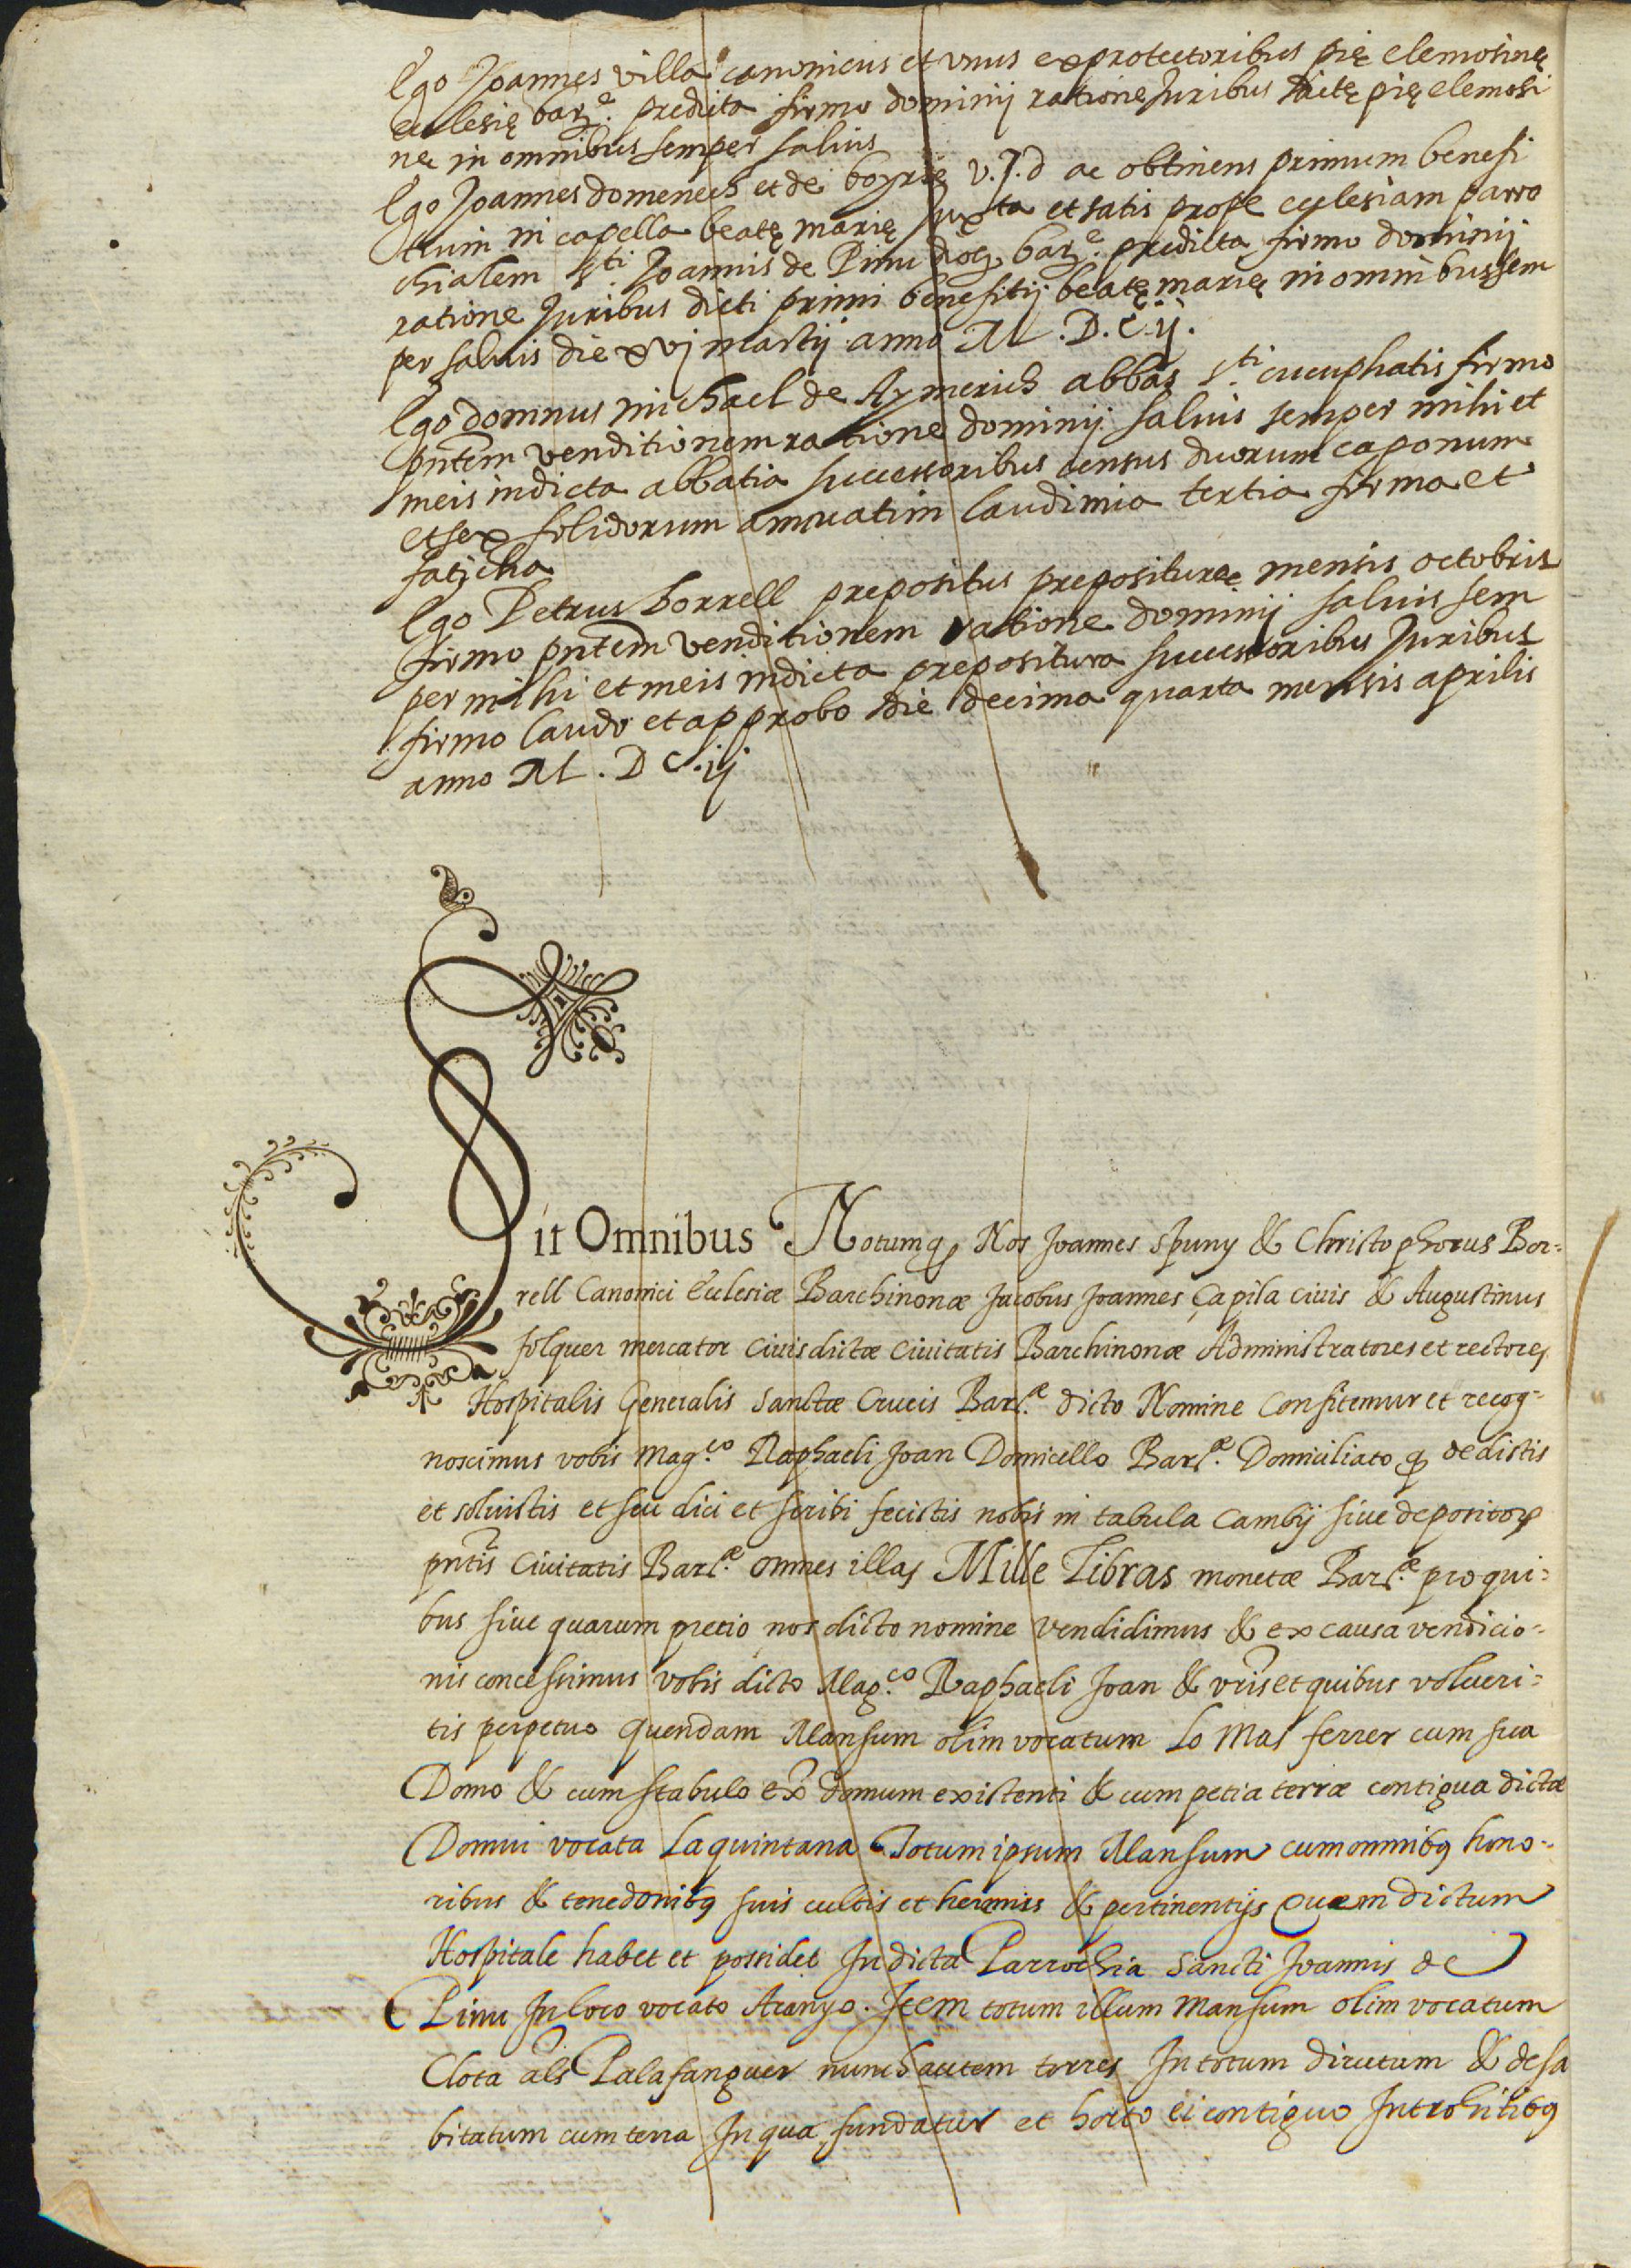 Ego Joannes villa canonicus et vnus ex protectoribus pię elemosinę
ecclesię barᵉ. predicta firmo dominij ratione Juribus dictę pię elemosi
nę in omnibus semper saluis
Ego Joannes domenech et de boxria v.J.d ac obtinens primum benefi
tium in capella beatę marię Juxta et satis prope ecclesiam parro
chialem sti. Joannis de Pinu dioc. barᵉ. predicta firmo dominij
ratione Juribus dicti primi benefitij beatę marię in omnibus sem
per saluis die xvj martij anno M.D.C.ij.
Ego domnus michael de Aymerich abbas sti cucuphatis firmo
pntem venditionem ratione dominij saluis semper mihi et
meis in dicta abbatia successoribus census duorum caponum
et sex solidorum annuatim laudimia tertia firma et
fatjcha
Ego Petrus borrell prepositus prepositurae mensis octobris
firmo pntem venditionem ratione dominij saluis sem
per mihi et meis in dicta prepositura successoribus Juribus
firmo laudo et approbo die decima quarta mensis aprilis
anno M.DC.ij
Sit Omnibus Notum q Nos Joannes Spuny & Christophorus Bor=
rell Canonici Ecclesiæ Barchinonæ Jacobus Joannes Çapila ciuis & Augustinus
folquer mercator ciuis dictæ Ciuitatis Barchinonæ Administratores et rectores
Hospitalis Generalis Sanctæ Crucis Bar.æ dicto Nomine Confitemur et recog=
noscimus vobis Mag.co Raphaeli Joan Domicello Bar.æ Domiciliato q dedistis
et soluistis et seu dici et scribi fecistis nobis in tabula Cambij siue depositor
pntis Ciuitatis Bar.æ omnes illas Mille Libras monetæ Bar.æ pro qui=
bus siue quarum precio nos dicto nomine vendidimus & ex causa vendicio=
nis concessimus vobis dicto Mag.co Raphaeli Joan & vris et quibus volueri=
tis perpetuo quendam Mansum olim vocatum Lo Mas ferrer cum sua
Domo & cum stabulo ex domum existenti & cum petia terræ contigua dictæ
Domui vocata La quintana Totum ipsum Mansum cum omnibq hono=
ribus & tenedonibq suis cultis et hermiss & pertinentijs Quem dictum
Hospitale habet et possidet In dicta Parrochia Sancti Joannis de
Pinu In loco vocato Aranyo. Item totum illum Mansum olim vocatum
Clota als Palafanguer nunch autem torres In totum dirutum & desa
bitatum cum terra In qua fundatur et horto ei contiguo Introhitibq